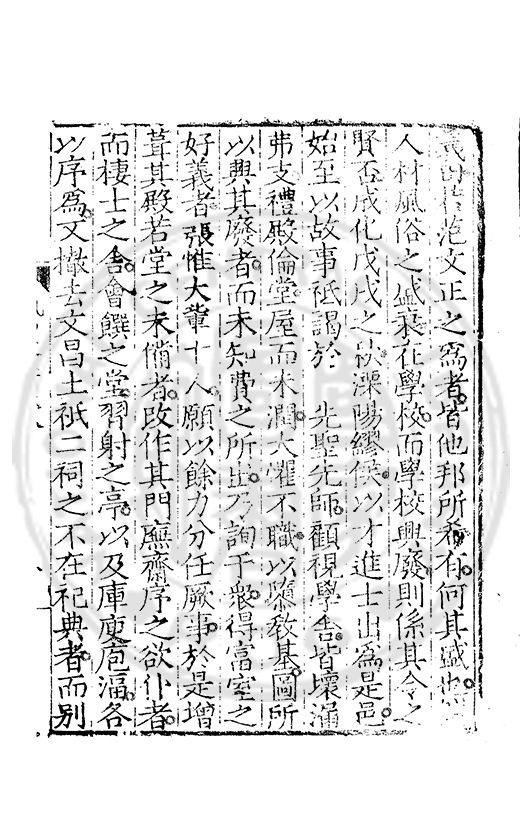 義田若范文正之爲者皆他邦所希有何其盛也
人材風俗之盛衰在學校而學校興廢則係其令之
賢否成化戊戌之秋溧陽繆侯以才進士出爲是邑
始至以故事祗謁於　先聖先師顧視學舍皆壞漏
弗支禮殿倫堂屋而未潤大懼不職以隳敎基圖所
以興其廢者而未知費之所出乃詢于衆得富室之
好義者張惟大輩十人願以餘力分任厥事於是增
葺其殿若堂之未備者改作其門廡齋序之欲仆者
而棲士之舍會饌之堂習射之亭以及庫庾庖湢各
以序爲文撤去文昌土祇二祠之不在祀典者而別